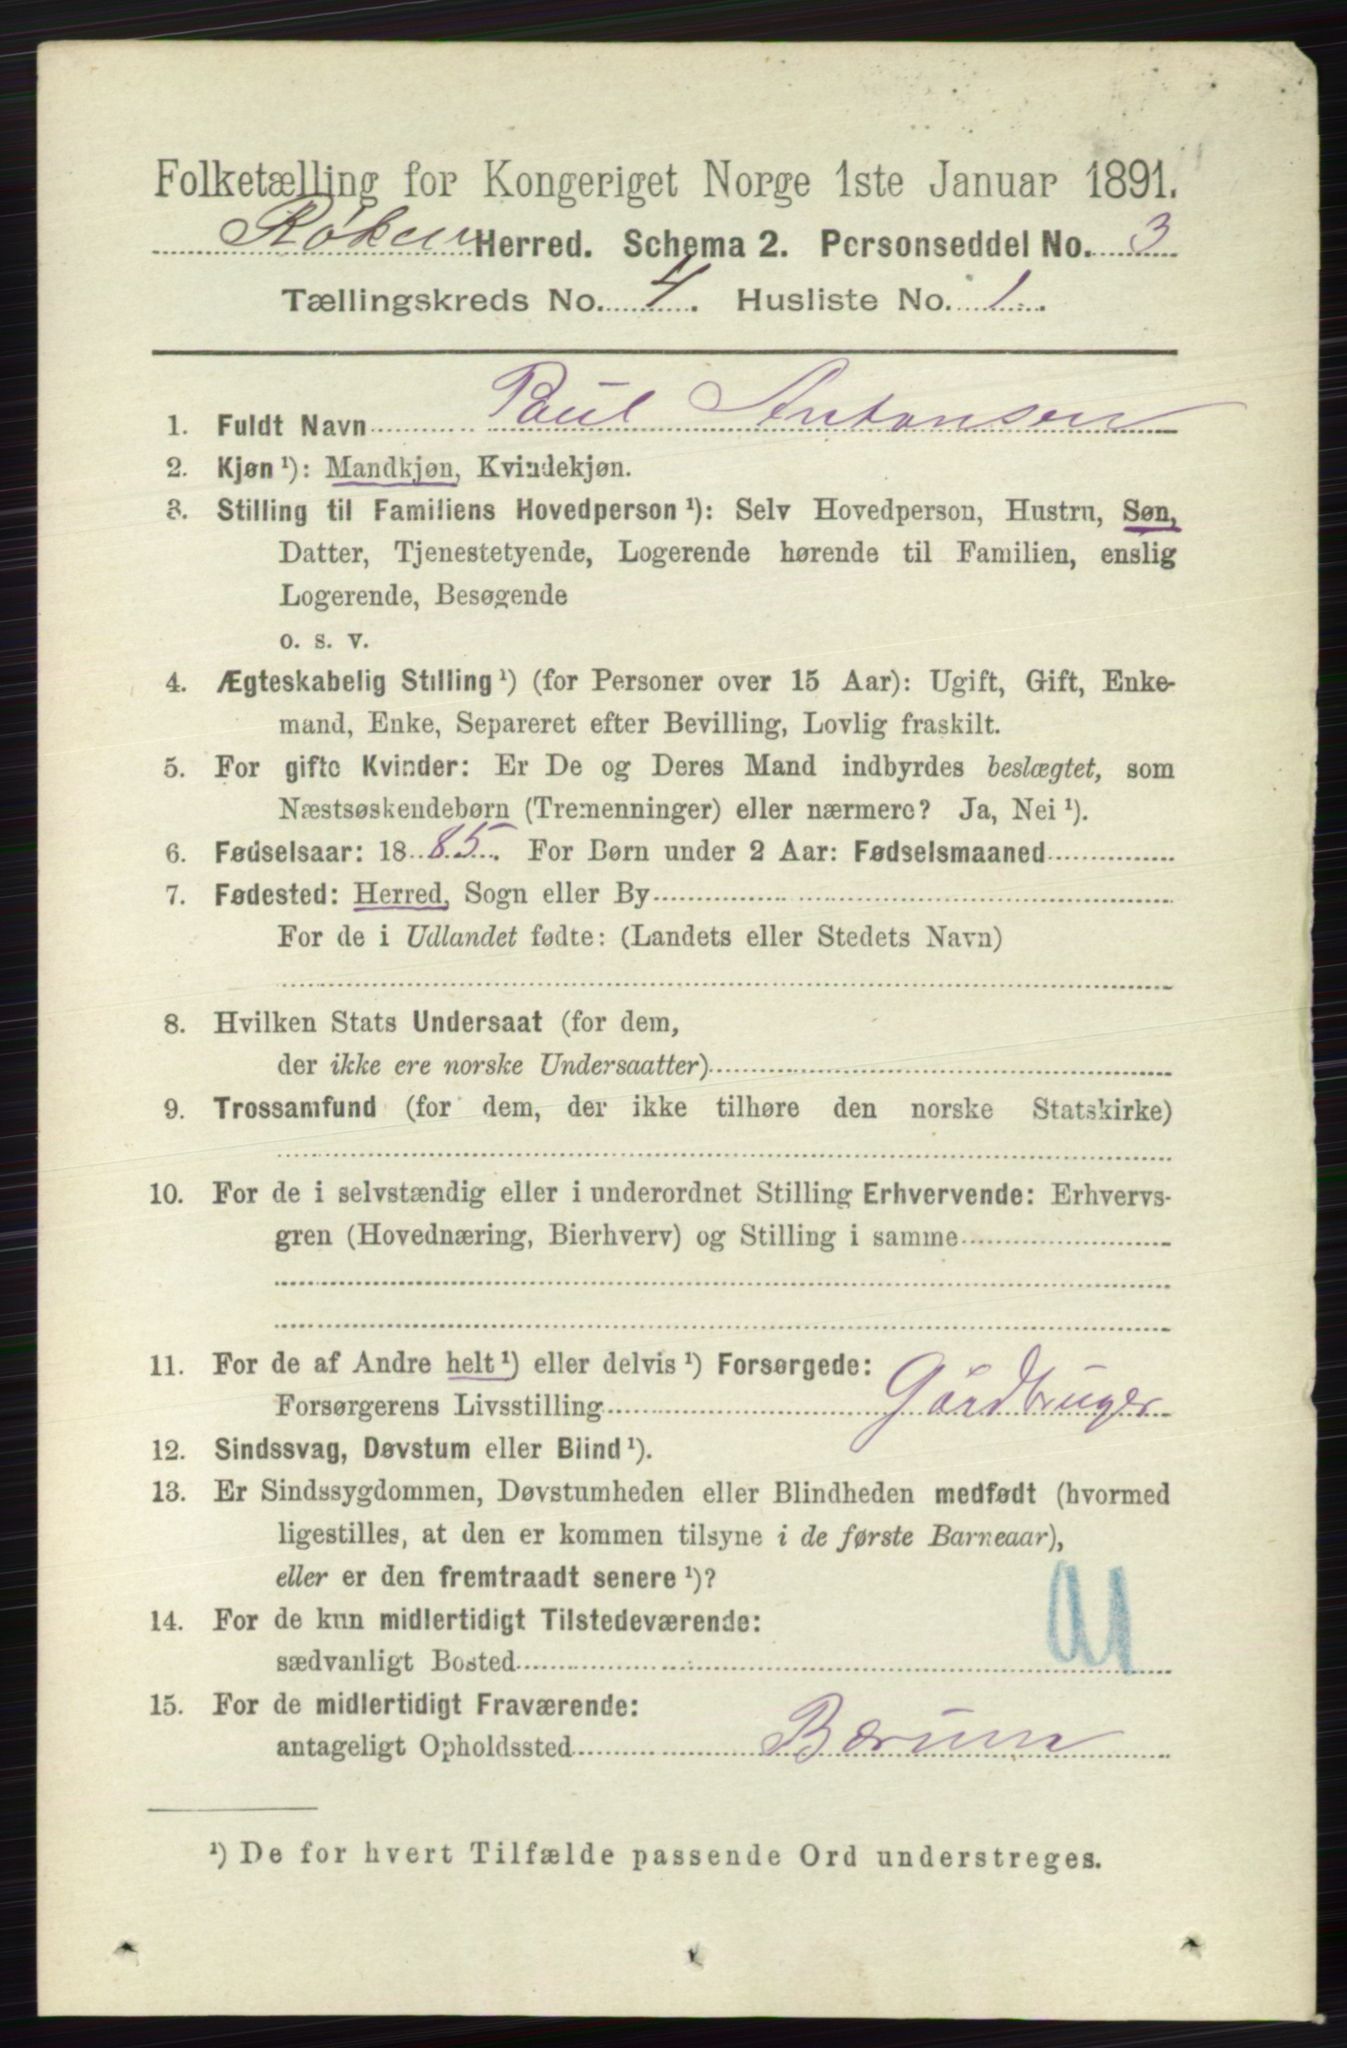 Folketælling for Kongeriget Norge 1ste Januar 1891.
Røken Herred. Schema 2. Personseddel No. 3
Tællingskreds No. 4. Husliste No. 1.
1. Fuldt Navn Paul Antonsen
2. Kjøn ¹): Mandkjøn, Kvindekjøn.
3. Stilling til Familiens Hovedperson ¹): Selv Hovedperson, Hustru, Søn,
Datter, Tjenestetyende, Logerende hørende til Familien, enslig
Logerende, Besøgende
o. s. v.
4. Ægteskabelig Stilling ¹) (for Personer over 15 Aar): Ugift, Gift, Enke-
mand, Enke, Separeret efter Bevilling, Lovlig fraskilt.
5. For gifte Kvinder: Er De og Deres Mand indbyrdes beslægtet, som
Næstsøskendebørn (Tremenninger) eller nærmere? Ja, Nei ¹).
6. Fødselsaar: 1885. For Børn under 2 Aar: Fødselsmaaned
7. Fødested: Herred, Sogn eller By
For de i Udlandet fødte: (Landets eller Stedets Navn)
8. Hvilken Stats Undersaat (for dem,
der ikke ere norske Undersaatter)
9. Trossamfund (for dem, der ikke tilhøre den norske Statskirke)
10. For de i selvstændig eller i underordnet Stilling Erhvervende: Erhvervs-
gren (Hovednæring, Bierhverv) og Stilling i samme
11. For de af Andre helt ¹) eller delvis ¹) Forsørgede:
Forsørgerens Livsstilling Gårdbruger
12. Sindssvag, Døvstum eller Blind ¹).
13. Er Sindssygdommen, Døvstumheden eller Blindheden medfødt (hvormed
ligestilles, at den er kommen tilsyne i de første Barneaar),
eller er den fremtraadt senere ¹)?
14. For de kun midlertidigt Tilstedeværende:
sædvanligt Bosted
15. For de midlertidigt Fraværende:
antageligt Opholdssted Bærum
¹) De for hvert Tilfælde passende Ord understreges.